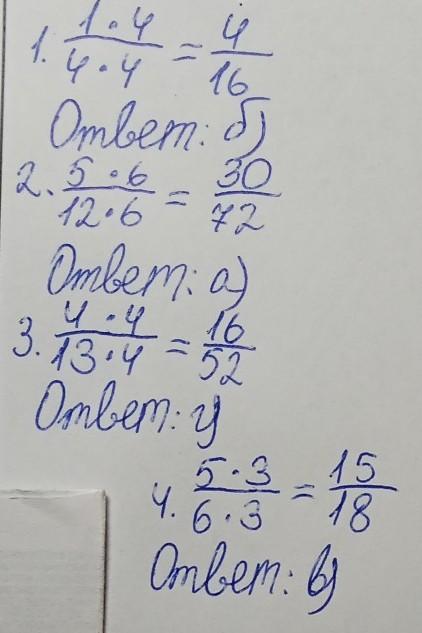 1. 1·4/4·4 = 4/16
Ответ: б)
2. 5·6/12·6 = 30/72
Ответ: а)
3. 4·4/13·4 = 16/52
Ответ:
4. 5·3/6·3 = 15/18
Ответ: в)